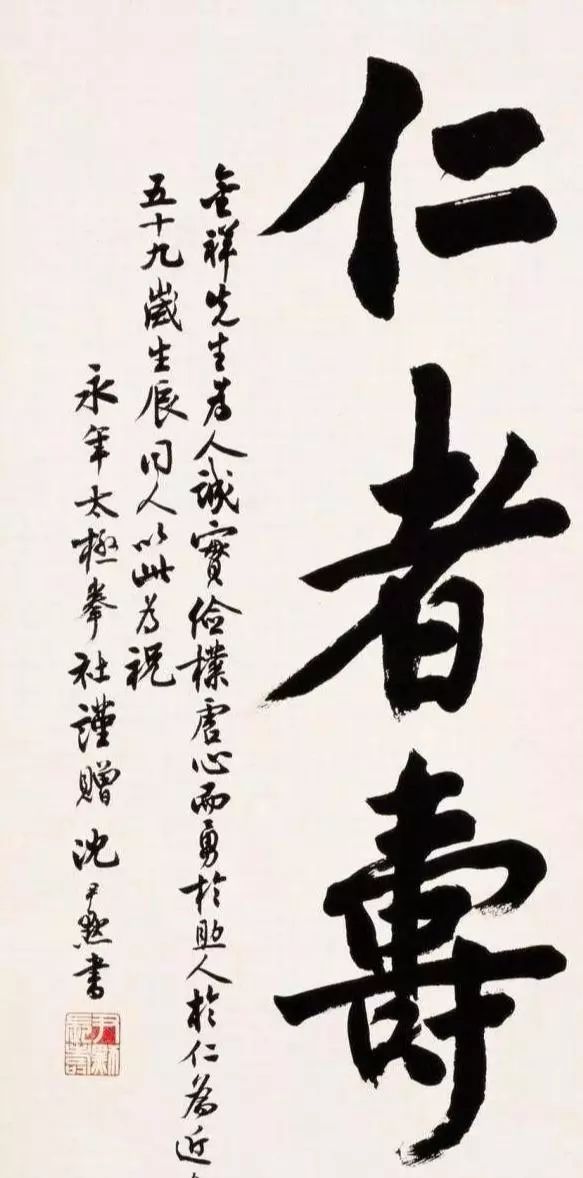 仁者壽
金祥先生為人誠實儉樸虛心而勇於助人於仁為近
五十九歲生辰同人以此為祝
永年太極拳社謹贈 沈尹默書